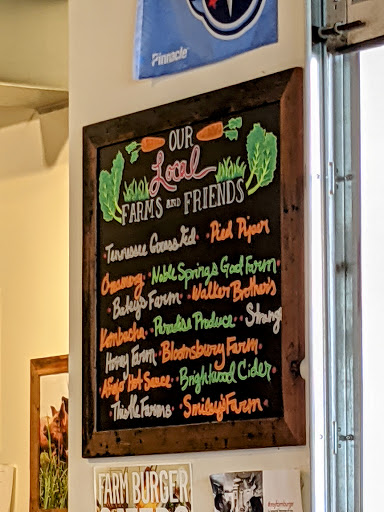 Pinnacle
OUR
Local
FARMS AND FRIENDS
Tennessee Grass Fed · Pied Piper
Creamery · Noble Springs Goat Farm ·
· Baileys Farm · Walker Brothers
Kombucha · Paradise Produce · Strange
Honey Farm · Bloomsbury Farm ·
Hot Sauce · Brightwood Cider ·
· Thistle Farms · Smiley's Farm ·
FARM BURGER
#myfarmburger